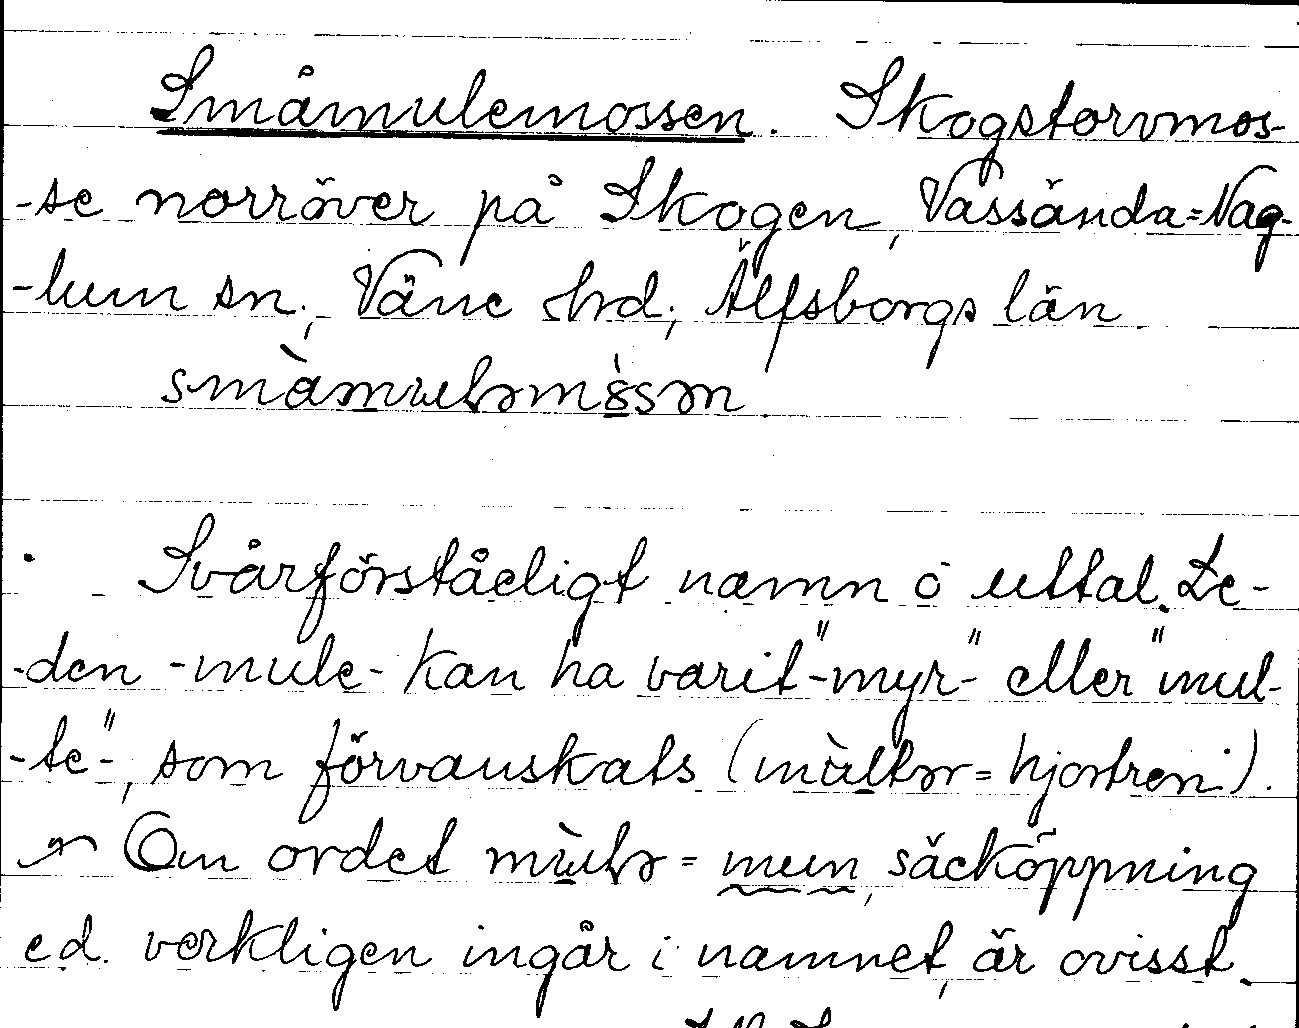 Småmulemossen. Skogstorvmos-
-se norröver på Skogen, Vassända=Nag-
-lum sn., Väne hrd; Älfsborgs län
smàmuləmòsən.
Svårförståeligt namn o uttal. Le-
-den -mule- kan ha varit "-myr-" eller "mul-
-te-", som förvanskats (mùltər = hjortron).
Om ordet mùlə = mun, säcköppning
e.d. verkligen ingår i namnet, är ovisst.